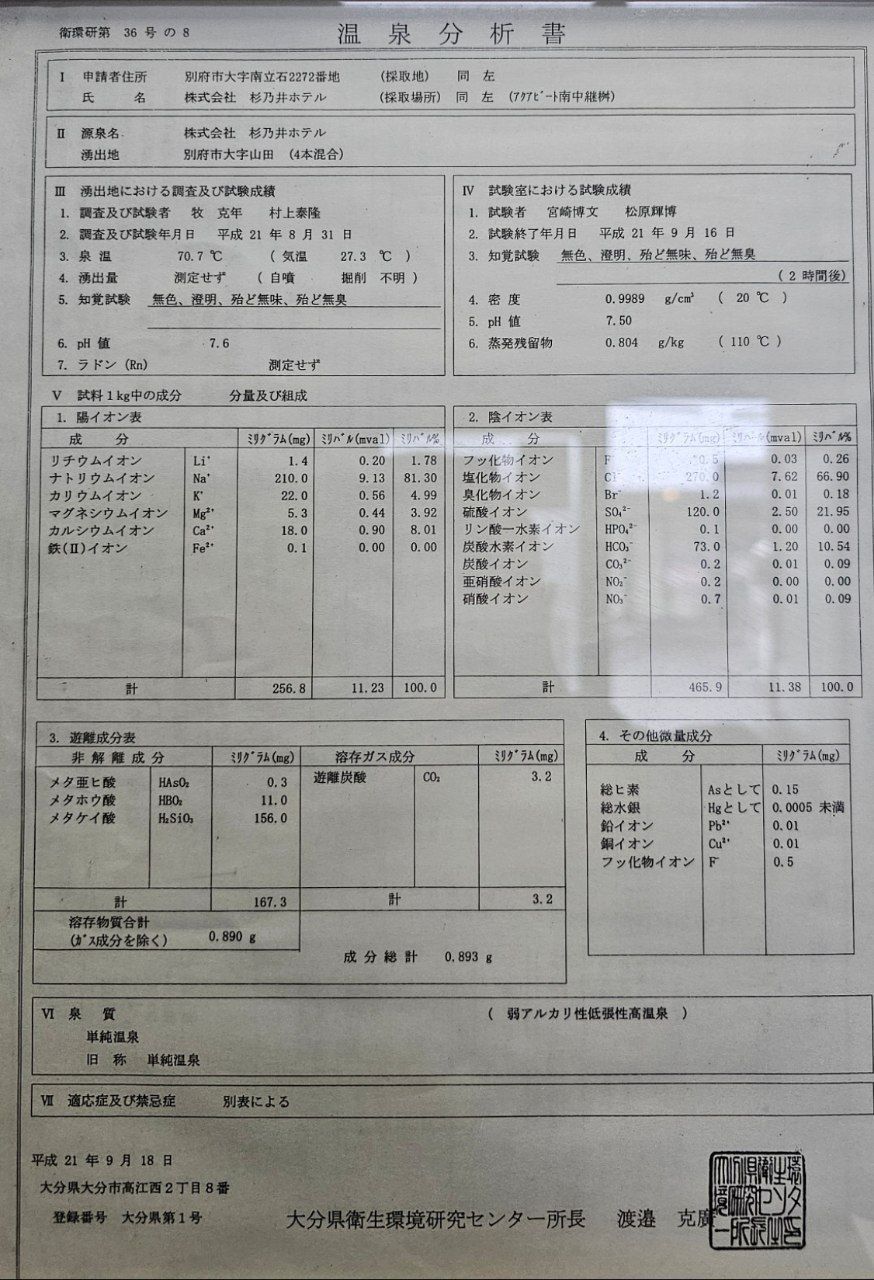 衛環研第 36 号 の 8
温泉分析書
Ⅰ 申請者住所 別府市大字南立石2272番地 (採取地) 同 左
氏 名 株式会社 杉乃井ホテル (採取場所) 同 左 (ｱｸｱﾋﾞｰﾄ南中継桝)
Ⅱ 源泉名 株式会社 杉乃井ホテル
湧出地 別府市大字山田 (4本混合)
Ⅲ 湧出地における調査及び試験成績
1. 調査及び試験者 牧 克年 村上泰隆
2. 調査及び試験年月日 平成 21 年 8 月 31 日
3. 泉 温 70.7 ℃ ( 気温 27.3 ℃ )
4. 湧出量 測定せず ( 自噴 掘削 不明 )
5. 知覚試験 無色、澄明、殆ど無味、殆ど無臭
6. pH 値 7.6
7. ラドン (Rn) 測定せず
Ⅳ 試験室における試験成績
1. 試験者 宮崎博文 松原輝博
2. 試験終了年月日 平成 21 年 9 月 16 日
3. 知覚試験 無色、澄明、殆ど無味、殆ど無臭
( 2 時間後)
4. 密 度 0.9989 g/cm³ ( 20 ℃ )
5. pH 値 7.50
6. 蒸発残留物 0.804 g/kg ( 110 ℃ )
Ⅴ 試料1kg中の成分 分量及び組成
1. 陽イオン表
成 分 ﾐﾘｸﾞﾗﾑ(mg) ﾐﾘﾊﾞﾙ(mval) ﾐﾘﾊﾞﾙ%
リチウムイオン Li⁺ 1.4 0.20 1.78
ナトリウムイオン Na⁺ 210.0 9.13 81.30
カリウムイオン K⁺ 22.0 0.56 4.99
マグネシウムイオン Mg²⁺ 5.3 0.44 3.92
カルシウムイオン Ca²⁺ 18.0 0.90 8.01
鉄(Ⅱ)イオン Fe²⁺ 0.1 0.00 0.00
計 256.8 11.23 100.0
2. 陰イオン表
成 分 ﾐﾘｸﾞﾗﾑ(mg) ﾐﾘﾊﾞﾙ(mval) ﾐﾘﾊﾞﾙ%
フッ化物イオン F⁻ 0.5 0.03 0.26
塩化物イオン Cl⁻ 270.0 7.62 66.90
臭化物イオン Br⁻ 1.2 0.01 0.18
硫酸イオン SO₄²⁻ 120.0 2.50 21.95
リン酸一水素イオン HPO₄²⁻ 0.1 0.00 0.00
炭酸水素イオン HCO₃⁻ 73.0 1.20 10.54
炭酸イオン CO₃²⁻ 0.2 0.01 0.09
亜硝酸イオン NO₂⁻ 0.2 0.00 0.00
硝酸イオン NO₃⁻ 0.7 0.01 0.09
計 465.9 11.38 100.0
3. 遊離成分表
非 解 離 成 分 ﾐﾘｸﾞﾗﾑ(mg) 溶存ガス成分 ﾐﾘｸﾞﾗﾑ(mg)
メタ亜ヒ酸 HAsO₂ 0.3 遊離炭酸 CO₂ 3.2
メタホウ酸 HBO₂ 11.0
メタケイ酸 H₂SiO₃ 156.0
計 167.3 計 3.2
溶存物質合計
(ｶﾞｽ成分を除く) 0.890 g
成 分 総 計 0.893 g
4. その他微量成分
成 分 ﾐﾘｸﾞﾗﾑ(mg)
総ヒ素 Asとして 0.15
総水銀 Hgとして 0.0005 未満
鉛イオン Pb²⁺ 0.01
銅イオン Cu²⁺ 0.01
フッ化物イオン F⁻ 0.5
Ⅵ 泉 質 ( 弱アルカリ性低張性高温泉 )
単純温泉
旧 称 単純温泉
Ⅶ 適応症及び禁忌症 別表による
平成 21 年 9 月 18 日
大分県大分市高江西2丁目8番
登録番号 大分県第1号
大分県衛生環境研究センター所長 渡邉 克廣